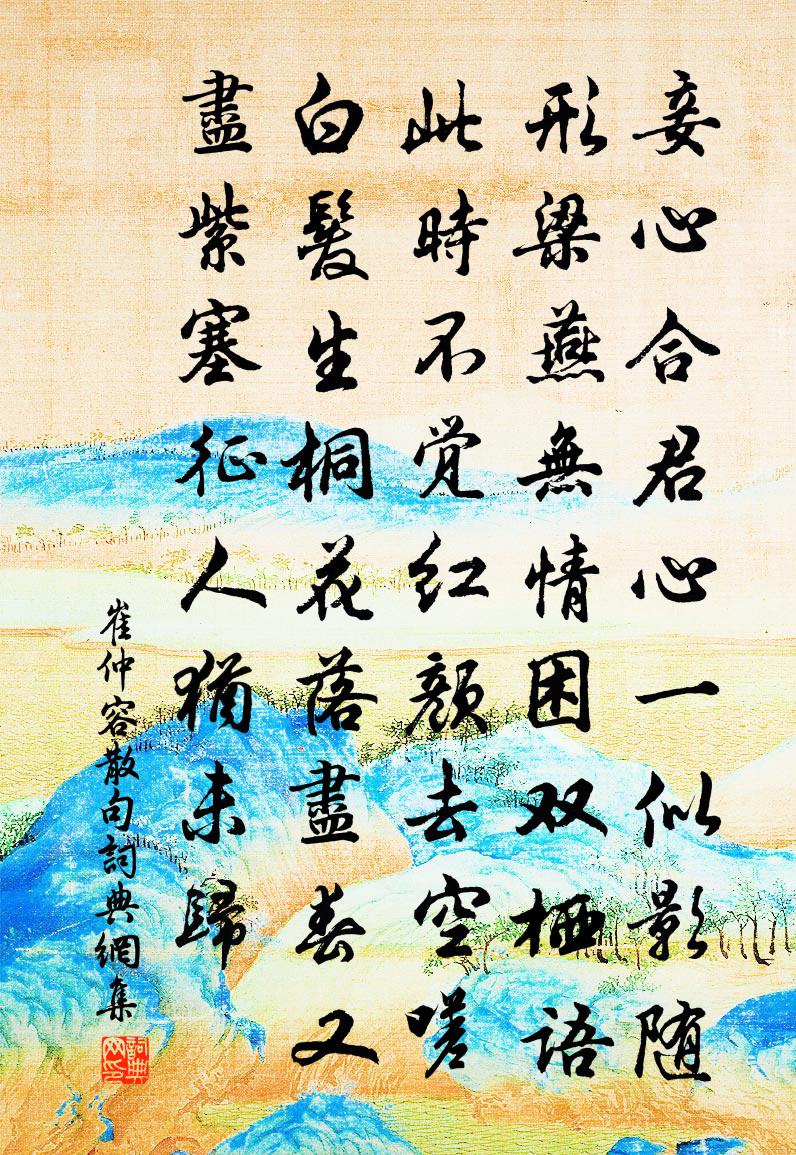 妾心合君心一似影随
形梁燕無情困双栖语
此時不觉红颜去空嗟
白髮生桐花落盡春又
盡紫塞征人猶未歸
崔仲容散句詞典網集
詞典网印